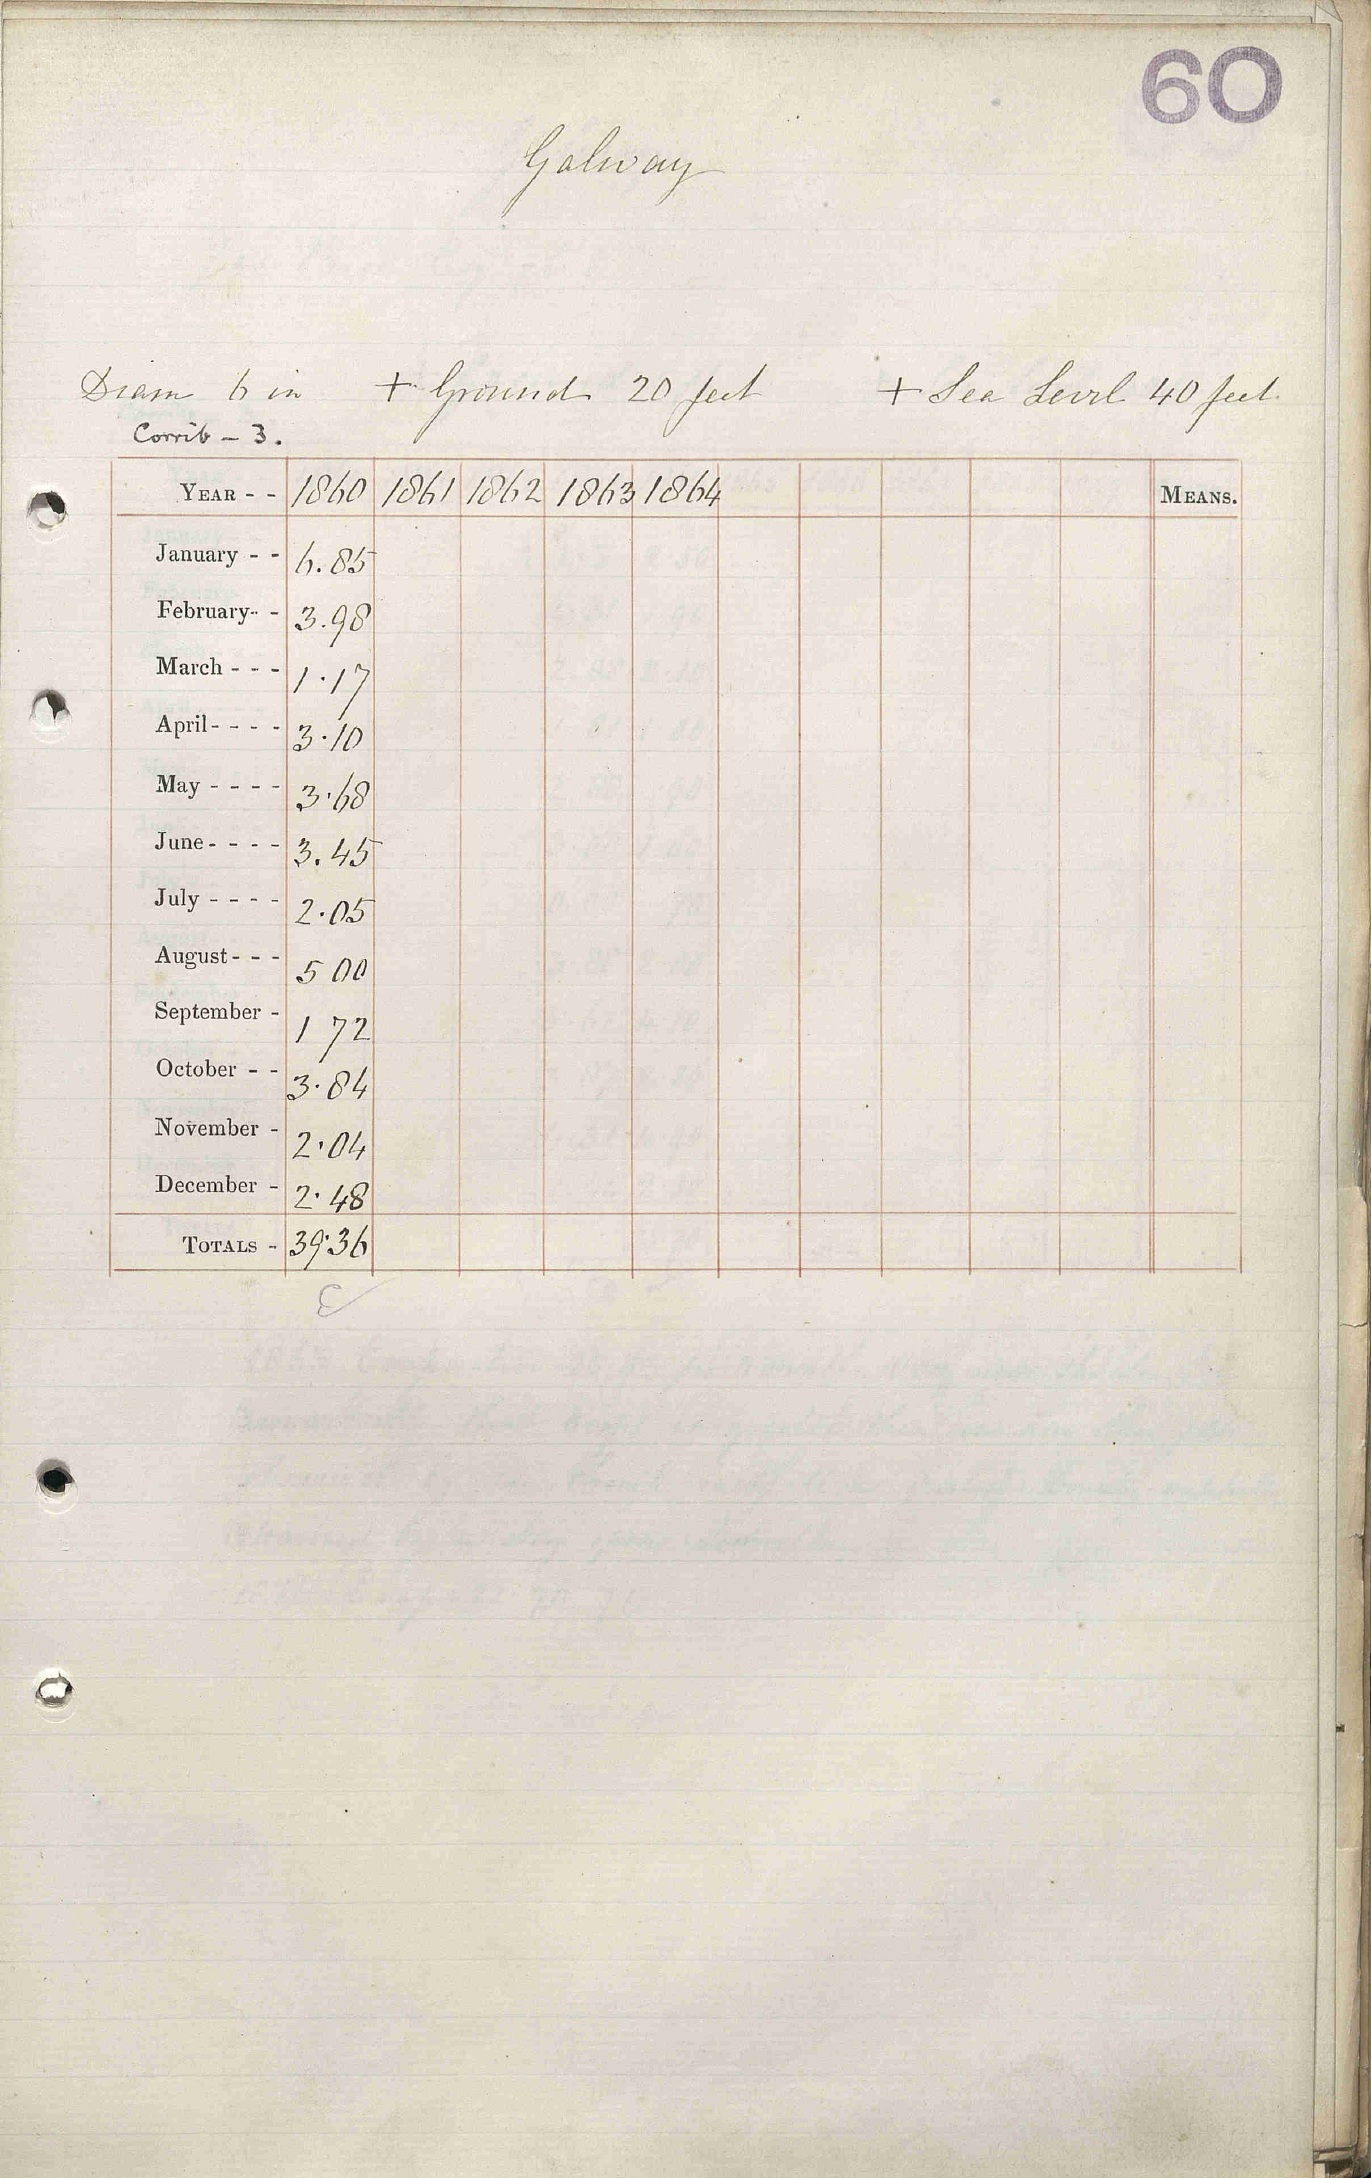 60
Galway
Diam 6 in + Ground 20 feet + Sea Level 40 feet.
Corrib - 3.
YEAR - - 1860 1861 1862 1863 1864 MEANS.
January - - 6.85
February - - 3.98
March - - - 1.17
April - - - - 3.10
May - - - - 3.68
June - - - - 3.45
July - - - - 2.05
August - - - 5 00
September - 1 72
October - - 3.84
November - 2.04
December - 2.48
TOTALS - 39.36